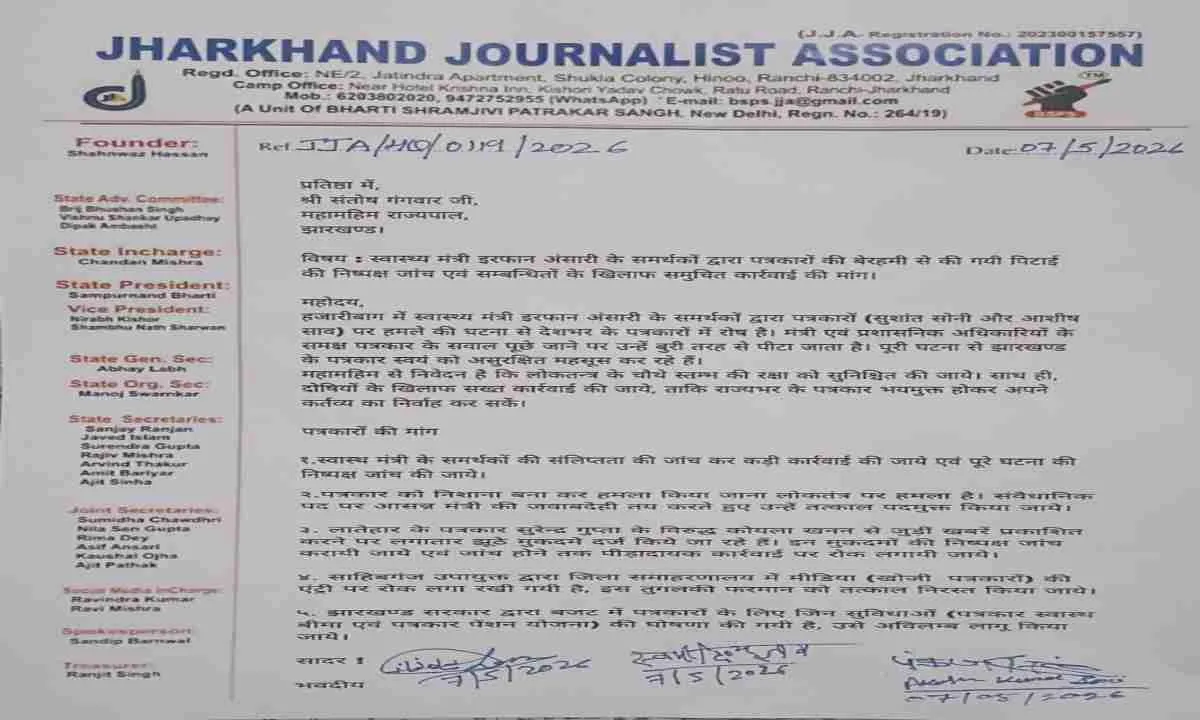 (J.J.A. Registration No.: 202300157557)
JHARKHAND JOURNALIST ASSOCIATION
Regd. Office: NE/2, Jatindra Apartment, Shukla Colony, Hinoo, Ranchi-834002, Jharkhand
Camp Office: Near Hotel Krishna Inn, Kishori Yadav Chowk, Ratu Road, Ranchi-Jharkhand
Mob.: 6203802020, 9472752955 (WhatsApp) E-mail: bsps.jja@gmail.com
(A Unit Of BHARTI SHRAMJIVI PATRAKAR SANGH, New Delhi, Regn. No.: 264/19)
TM
BSPS
Ref. JJA/HQ/0119/2026
Date: 07/5/2026
Founder:
Shahnwaz Hassan
State Adv. Committee:
Brij Bhushan Singh
Vishnu Shankar Upadhay
Dipak Ambasht
State Incharge:
Chandan Mishra
State President:
Sampurnand Bharti
Vice President:
Nirabh Kishor
Shambhu Nath Sharwan
State Gen. Sec:
Abhay Labh
State Org. Sec:
Manoj Swarnkar
State Secretaries:
Sanjay Ranjan
Javed Islam
Surendra Gupta
Rajiv Mishra
Arvind Thakur
Amit Bariyar
Ajit Sinha
Joint Secretaries:
Sumidha Chawdhri
Nila Sen Gupta
Rima Dey
Asif Ansari
Kaushal Ojha
Ajit Pathak
Social Media InCharge:
Ravindra Kumar
Ravi Mishra
Spokesperson:
Sandip Barnwal
Treasurer:
Ranjit Singh
प्रतिष्ठा में,
श्री संतोष गंगवार जी,
महामहिम राज्यपाल,
झारखण्ड।
विषय : स्वास्थ्य मंत्री इरफान अंसारी के समर्थकों द्वारा पत्रकारों की बेरहमी से की गयी पिटाई
की निष्पक्ष जांच एवं सम्बन्धितों के खिलाफ समुचित कार्रवाई की मांग।
महोदय,
हजारीबाग में स्वास्थ्य मंत्री इरफान अंसारी के समर्थकों द्वारा पत्रकारों (सुशांत सोनी और आशीष
साव) पर हमले की घटना से देशभर के पत्रकारों में रोष है। मंत्री एवं प्रशासनिक अधिकारियों के
समक्ष पत्रकार के सवाल पूछे जाने पर उन्हें बुरी तरह से पीटा जाता है। पूरी घटना से झारखण्ड
के पत्रकार स्वयं को असुरक्षित महसूस कर रहे हैं।
महामहिम से निवेदन है कि लोकतन्त्र के चौथे स्तम्भ की रक्षा को सुनिश्चित की जाये। साथ ही,
दोषियों के खिलाफ सख्त कार्रवाई की जाये, ताकि राज्यभर के पत्रकार भयमुक्त होकर अपने
कर्तव्य का निर्वाह कर सकें।
पत्रकारों की मांग
१.स्वास्थ मंत्री के समर्थकों की संलिप्तता की जांच कर कड़ी कार्रवाई की जाये एवं पूरे घटना की
निष्पक्ष जांच की जाये।
२.पत्रकार को निशाना बना कर हमला किया जाना लोकतंत्र पर हमला है। संवैधानिक
पद पर आसन्न मंत्री की जवाबदेही तय करते हुए उन्हें तत्काल पदमुक्त किया जाये।
३. लातेहार के पत्रकार सुरेन्द्र गुप्ता के विरुद्ध कोयला खनन से जुड़ी खबरें प्रकाशित
करने पर लगातार झूठे मुकदमें दर्ज किये जा रहे हैं। इन मुकदमों की निष्पक्ष जांच
करायी जाये एवं जांच होने तक पीड़ादायक कार्रवाई पर रोक लगायी जाये।
४. साहिबगंज उपायुक्त द्वारा जिला समाहरणालय में मीडिया (खोजी पत्रकारों) की
एंट्री पर रोक लगा रखी गयी है, इस तुगलकी फरमान को तत्काल निरस्त किया जाये।
५. झारखण्ड सरकार द्वारा बजट में पत्रकारों के लिए जिन सुविधाओं (पत्रकार स्वास्थ
बीमा एवं पत्रकार पेंशन योजना) की घोषणा की गयी है, उसे अविलम्ब लागू किया
जाये।
सादर :
भवदीय
7/5/2026
7/5/2026
07/05/2026